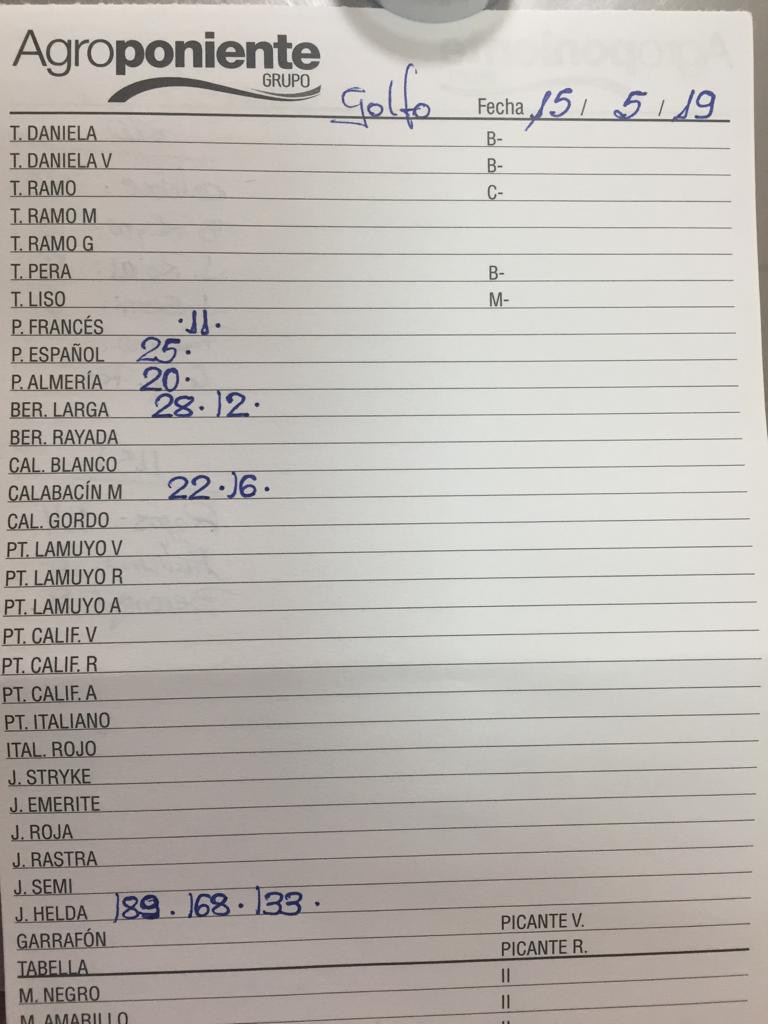 Agroponiente
GRUPO
Golfo Fecha 15 / 5 / 19
T. DANIELA B-
T. DANIELA V B-
T. RAMO C-
T. RAMO M
T. RAMO G
T. PERA B-
T. LISO M-
P. FRANCÉS ·11·
P. ESPAÑOL 25·
P. ALMERÍA 20·
BER. LARGA 28·12·
BER. RAYADA
CAL. BLANCO
CALABACÍN M 22·16·
CAL. GORDO
PT. LAMUYO V
PT. LAMUYO R
PT. LAMUYO A
PT. CALIF. V
PT. CALIF. R
PT. CALIF. A
PT. ITALIANO
ITAL. ROJO
J. STRYKE
J. EMERITE
J. ROJA
J. RASTRA
J. SEMI
J. HELDA 189·168·133·
GARRAFÓN PICANTE V.
TABELLA PICANTE R.
M. NEGRO II
M. AMARILLO II